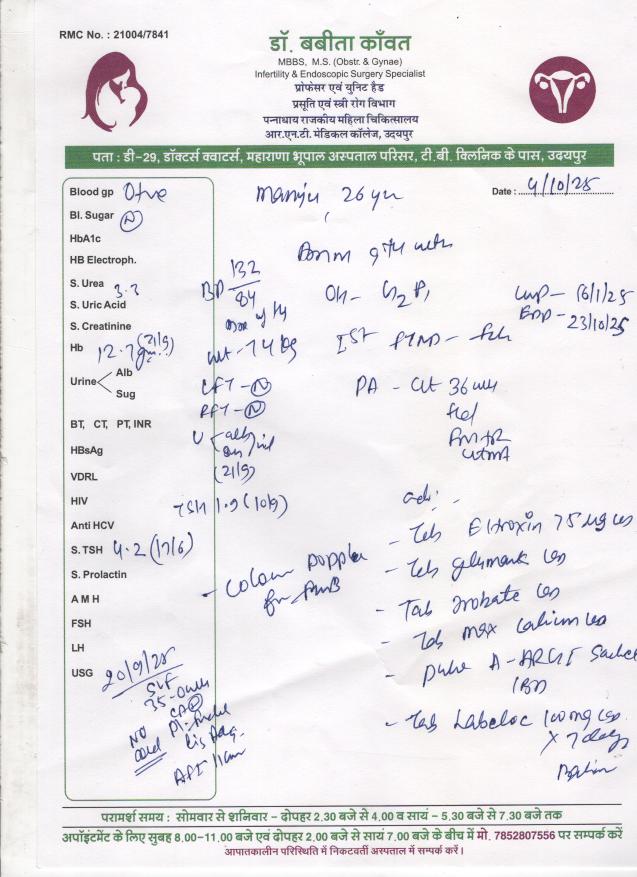 RMC No. : 21004/7841
डॉ. बबीता काँवत
MBBS, M.S. (Obstr. & Gynae)
Infertility & Endoscopic Surgery Specialist
प्रोफेसर एवं युनिट हैड
प्रसूति एवं स्त्री रोग विभाग
पन्नाधाय राजकीय महिला चिकित्सालय
आर.एन.टी. मेडिकल कॉलेज, उदयपुर
पता : डी-29, डॉक्टर्स क्वाटर्स, महाराणा भूपाल अस्पताल परिसर, टी.बी. क्लिनिक के पास, उदयपुर
Blood gp O+ve
Manju 26 yr
Date : 4/10/25
Bl. Sugar N
HbA1c
HB Electroph.
S. Urea 3.3
S. Uric Acid
S. Creatinine
Hb 12.7 gm (21/9)
Urine Alb
Sug
BT, CT, PT, INR
HBsAg
VDRL
HIV
Anti HCV
S. TSH 4.2 (17/6)
S. Prolactin
A M H
FSH
LH
USG 20/9/25
SLF
35
NO
cord
AFI 11cm
BP 132/84
wt - 74 kg
LFT - N
RFT - N
U
(21/9)
TSH 1.9 (10/9)
- Colour Doppler
OH - G2P1
LMP - 16/1/25
EDD - 23/10/25
IST FTND - Fch
PA - Ut 36 wks
adv. -
- Tab Eltroxin 75 µg
- Tab
- Tab
- Tab Max Calcium
- A-ARGI Sachet
(BD)
- Tab Labeloc 100 mg
x 7 days
परामर्श समय : सोमवार से शनिवार - दोपहर 2.30 बजे से 4.00 व सायं - 5.30 बजे से 7.30 बजे तक
अपॉइंटमेंट के लिए सुबह 8.00-11.00 बजे एवं दोपहर 2.00 बजे से सायं 7.00 बजे के बीच में मो. 7852807556 पर सम्पर्क करें
आपातकालीन परिस्थिति में निकटवर्ती अस्पताल में सम्पर्क करें।